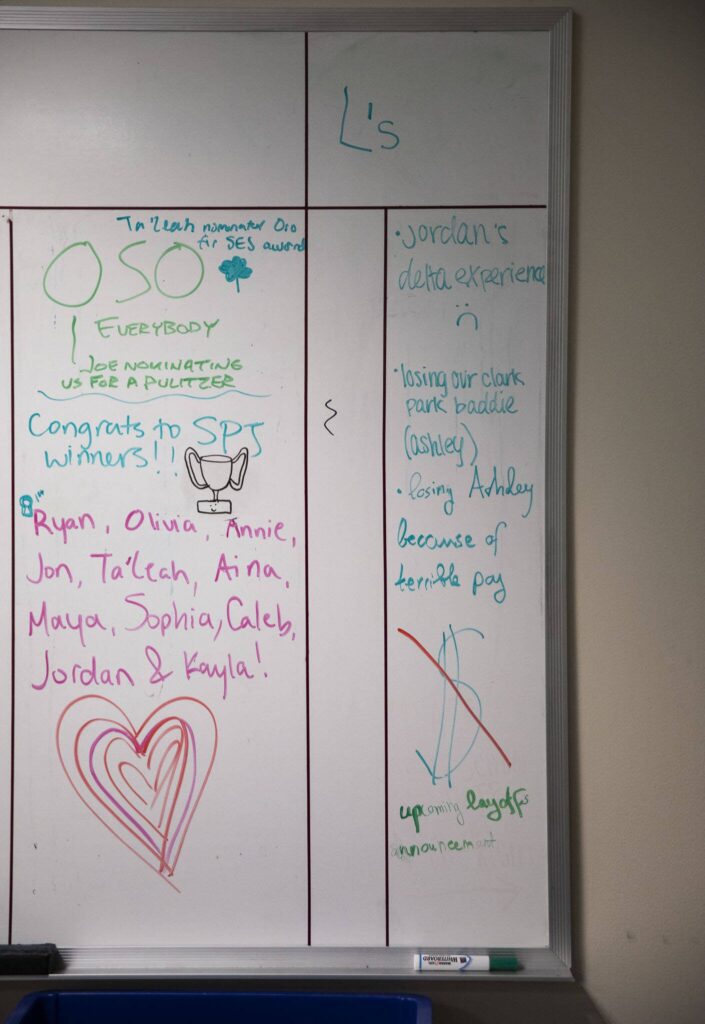 L's
Ta'leah nominated Oso
for SES award
OSO
EVERYBODY
JOE NOMINATING
US FOR A PULITZER
Congrats to SPJ
winners!!
8"
Ryan, Olivia, Annie,
Jon, Ta'leah, Aina,
Maya, Sophia, Caleb,
Jordan & Kayla!
• jordan's
delta experience
• losing our clark
park baddie
(ashley)
• losing Ashley
because of
terrible pay
$
upcoming layoffs
announcement
WHITEBOARD